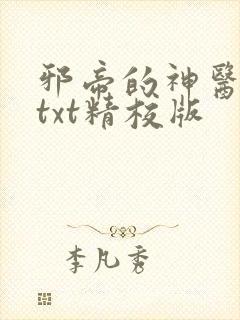 邪帝的神醫
txt精校版
李凡秀